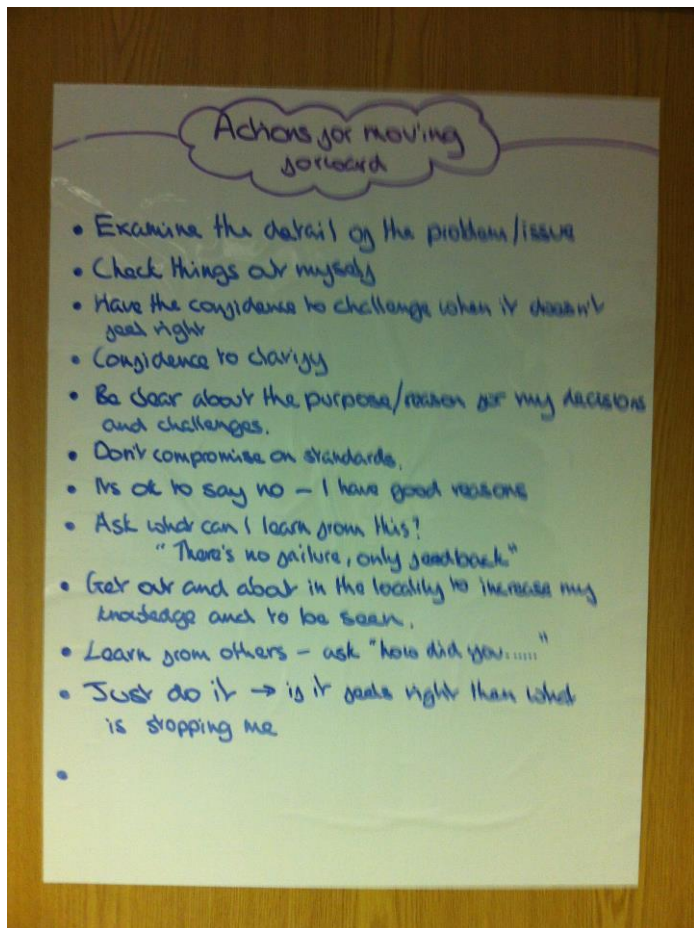 Actions for moving
forward
• Examine the detail of the problem/issue
• Check things out myself
• Have the confidence to challenge when it doesn't
feel right
• Confidence to clarify
• Be clear about the purpose/reason for my decisions
and challenges.
• Don't compromise on standards.
• It's ok to say no – I have good reasons
• Ask what can I learn from this?
"There's no failure, only feedback"
• Get out and about in the locality to increase my
knowledge and to be seen.
• Learn from others – ask "how did you......"
• Just do it → if it feels right then what
is stopping me
•